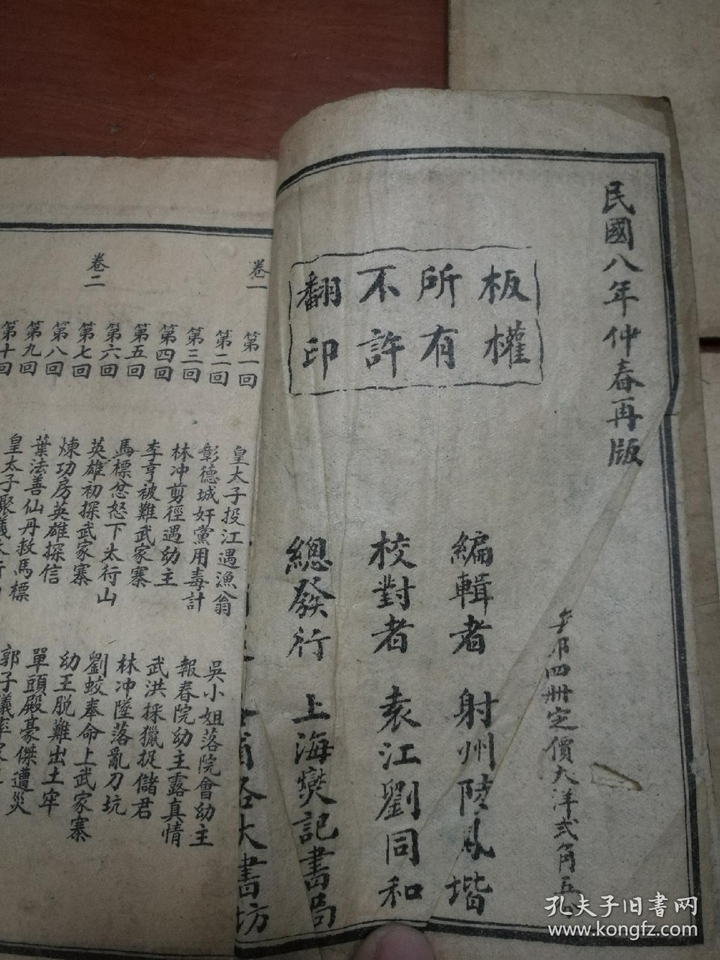 民國八年仲春再版
板權
所有
不許
翻印
每部四冊定價大洋弍角五
編輯者 射州陸鳳堦
校對者 袁江劉同和
總發行 上海爕記書局
各大書坊
卷一
第一回 皇太子投江遇漁翁 吳小姐落院會幼主
第二回 彰德城奸黨用毒計 報春院幼主露真情
第三回 林冲剪徑遇幼主 武洪採獵捉儲君
第四回 李亨被難武家寨 林冲墜落亂刀坑
第五回 馬標忿怒下太行山 劉蛟奉命上武家寨
卷二
第六回 英雄初探武家寨 幼王脫難出土牢
第七回 煉功房英雄探信 單頭殿豪傑遭災
第八回 葉法善仙丹救馬標 郭子儀
第九回 皇太子聚義太行
第十回
孔夫子旧书网
www.kongfz.com